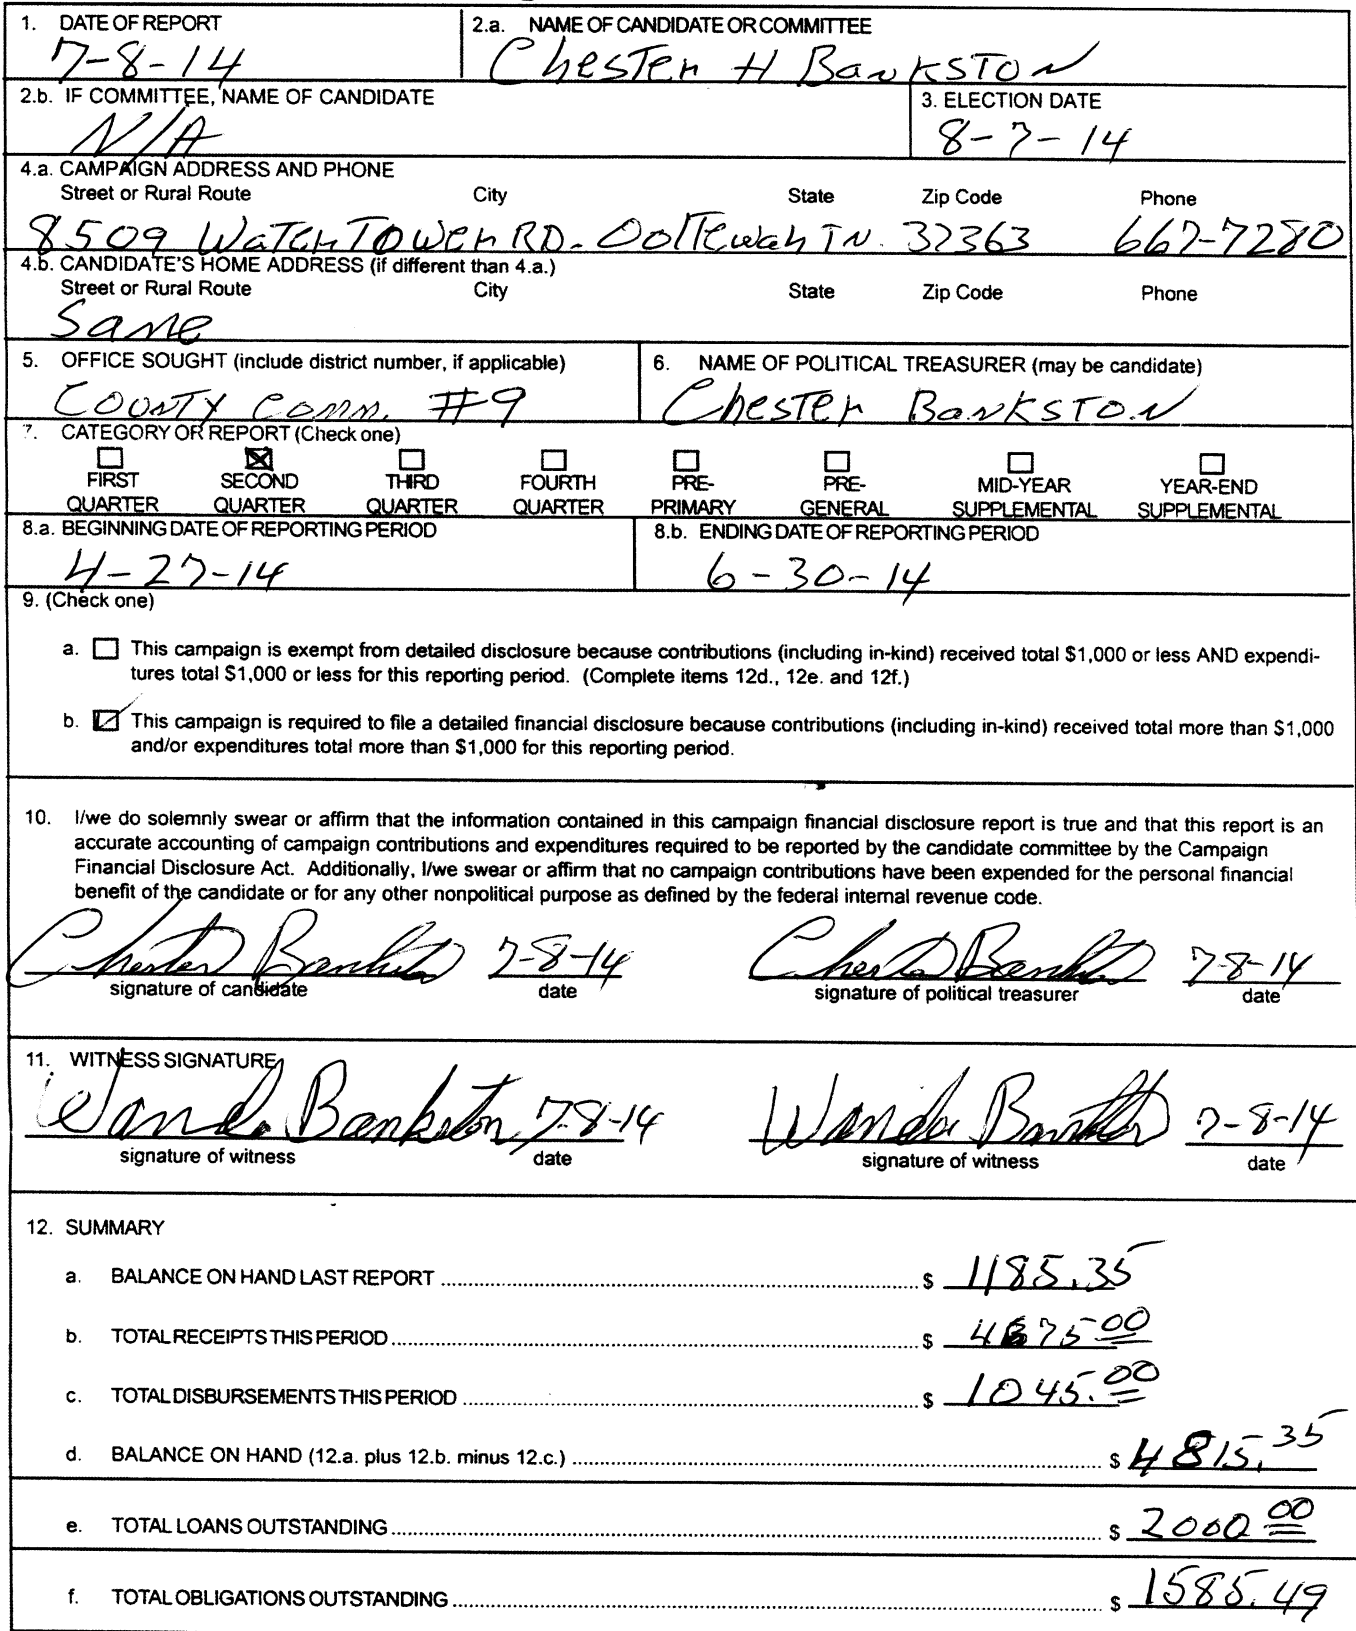 1. DATE OF REPORT
7-8-14
2.a. NAME OF CANDIDATE OR COMMITTEE
Chester H Bankston
2.b. IF COMMITTEE, NAME OF CANDIDATE
N/A
3. ELECTION DATE
8-7-14
4.a. CAMPAIGN ADDRESS AND PHONE
Street or Rural Route City State Zip Code Phone
8509 Water Tower RD. Ooltewah TN. 37363 667-7280
4.b. CANDIDATE'S HOME ADDRESS (if different than 4.a.)
Street or Rural Route City State Zip Code Phone
Same
5. OFFICE SOUGHT (include district number, if applicable)
County Comm. #9
6. NAME OF POLITICAL TREASURER (may be candidate)
Chester Bankston
7. CATEGORY OR REPORT (Check one)
FIRST SECOND THIRD FOURTH PRE- PRE- MID-YEAR YEAR-END
QUARTER QUARTER QUARTER QUARTER PRIMARY GENERAL SUPPLEMENTAL SUPPLEMENTAL
8.a. BEGINNING DATE OF REPORTING PERIOD
4-27-14
8.b. ENDING DATE OF REPORTING PERIOD
6-30-14
9. (Check one)
a. This campaign is exempt from detailed disclosure because contributions (including in-kind) received total $1,000 or less AND expendi-
tures total $1,000 or less for this reporting period. (Complete items 12d., 12e. and 12f.)
b. This campaign is required to file a detailed financial disclosure because contributions (including in-kind) received total more than $1,000
and/or expenditures total more than $1,000 for this reporting period.
10. I/we do solemnly swear or affirm that the information contained in this campaign financial disclosure report is true and that this report is an
accurate accounting of campaign contributions and expenditures required to be reported by the candidate committee by the Campaign
Financial Disclosure Act. Additionally, I/we swear or affirm that no campaign contributions have been expended for the personal financial
benefit of the candidate or for any other nonpolitical purpose as defined by the federal internal revenue code.
Chester Bankston 7-8-14 Chester Bankston 7-8-14
signature of candidate date signature of political treasurer date
11. WITNESS SIGNATURE
Wanda Bankston 7-8-14 Wanda Bankston 7-8-14
signature of witness date signature of witness date
12. SUMMARY
a. BALANCE ON HAND LAST REPORT $ 1185.35
b. TOTAL RECEIPTS THIS PERIOD $ 4675 00
c. TOTAL DISBURSEMENTS THIS PERIOD $ 1045.00
d. BALANCE ON HAND (12.a. plus 12.b. minus 12.c.) $ 4815.35
e. TOTAL LOANS OUTSTANDING $ 2000 00
f. TOTAL OBLIGATIONS OUTSTANDING $ 1585.49